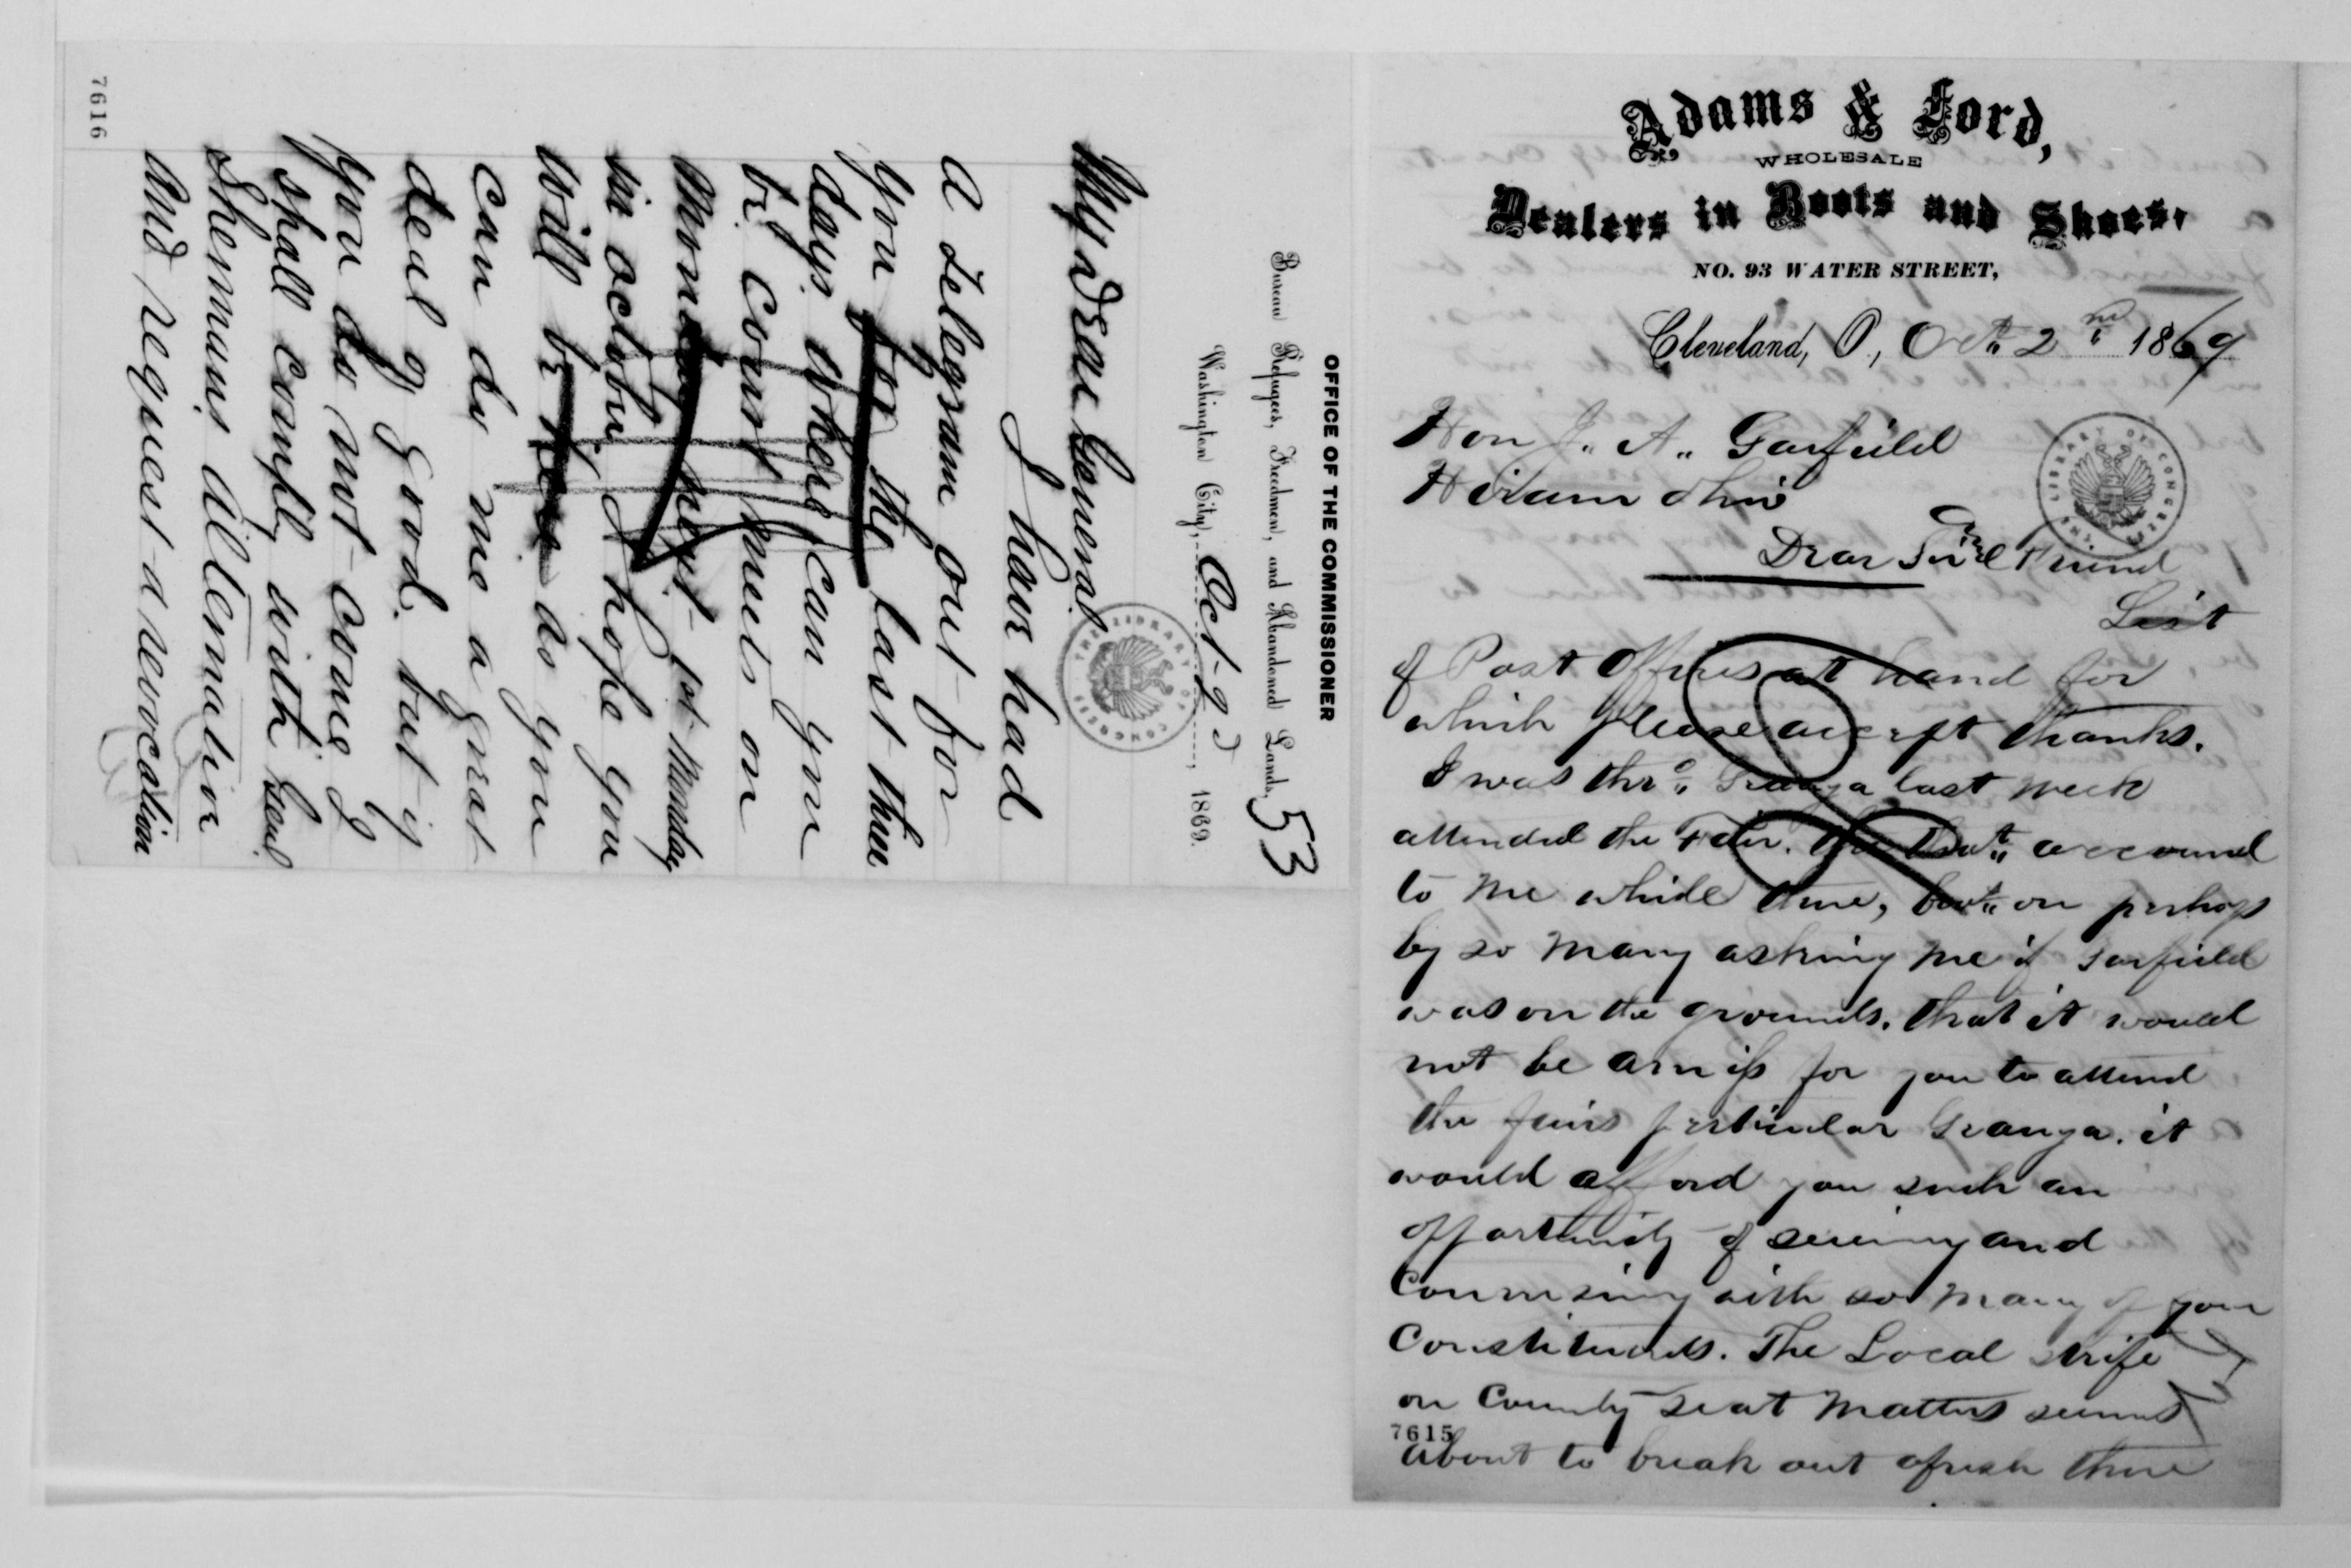 7616
OFFICE OF THE COMMISSIONER
Bureau Refugees, Freedmen, and Abandoned Lands,
53
Washington City, Oct 2d, 1869.
My dear General
I have had
a telegram out for
you for the last three
days. Where can you
be Court meets on
Monday next 1st Monday
in october I hope you
will be here as you
can do me a great
deal of good, but if
you do not come I
shall comply with Genl
Shermans alternative
and request a revocation
THE LIBRARY OF CONGRESS
Adams & Ford,
WHOLESALE
Dealers in Boots and Shoes,
NO. 93 WATER STREET,
Cleveland, O., Oct. 2nd 1869
Hon J. A. Garfield
Hiram Ohio
Dear Genl Friend
List
of Post Offices at hand for
which please accept thanks.
I was thro Geauga last week
attended the Fair. The thot occurred
to me while there, but on perhaps
by so many asking me if Garfield
was on the grounds. that it would
not be amiss for you to attend
the fairs perticular Geauga. it
would afford you such an
opportunity of seeing and
Conversing with so many of your
Constituents. The Local strife
on County seat matters seemed
about to break out afresh there
7615
THE LIBRARY OF CONGRESS